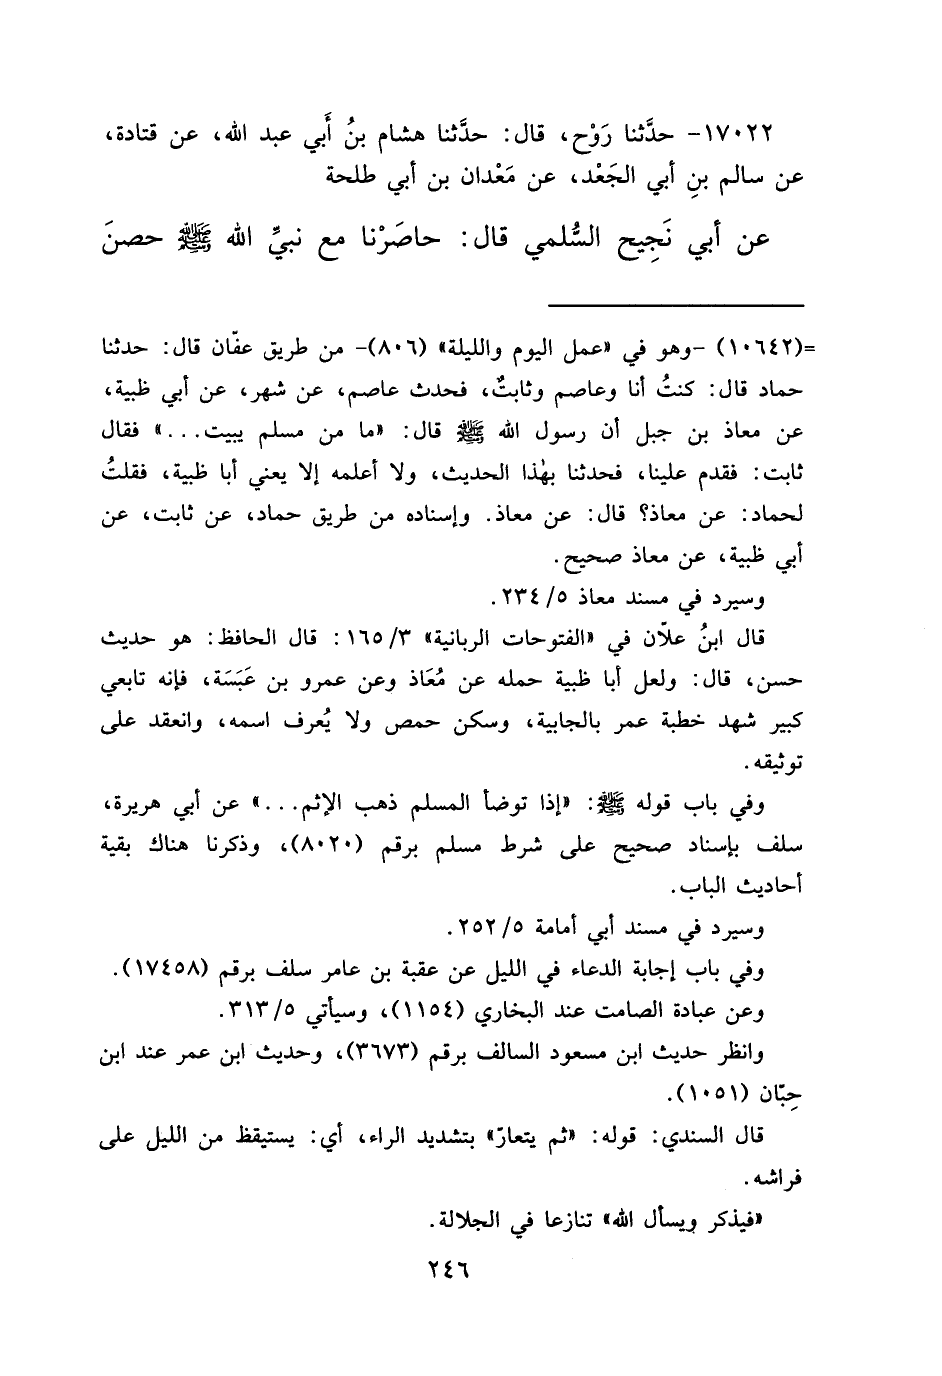 ١٧٠٢٢- حدَّثنا رَوْح، قال: حدَّثنا هشام بنُ أَبي عبد الله، عن قتادة،
عن سالم بنِ أبي الجَعْد، عن مَعْدان بن أبي طلحة
عن أبي نَجِيح السُّلمي قال: حاصَرْنا مع نبيِّ الله ﷺ حصنَ
=(١٠٦٤٢) -وهو في «عمل اليوم والليلة» (٨٠٦)- من طريق عفّان قال: حدثنا
حماد قال: كنتُ أنا وعاصم وثابتٌ، فحدث عاصم، عن شهر، عن أبي ظبية،
عن معاذ بن جبل أن رسول الله ﷺ قال: «ما من مسلم يبيت...» فقال
ثابت: فقدم علينا، فحدثنا بهٰذا الحديث، ولا أعلمه إلا يعني أبا ظبية، فقلتُ
لحماد: عن معاذ؟ قال: عن معاذ. وإسناده من طريق حماد، عن ثابت، عن
أبي ظبية، عن معاذ صحيح.
وسيرد في مسند معاذ ٢٣٤/٥.
قال ابنُ علّان في «الفتوحات الربانية» ١٦٥/٣: قال الحافظ: هو حديث
حسن، قال: ولعل أبا ظبية حمله عن مُعَاذ وعن عمرو بن عَبَسَة، فإنه تابعي
كبير شهد خطبة عمر بالجابية، وسكن حمص ولا يُعرف اسمه، وانعقد على
توثيقه.
وفي باب قوله ﷺ: «إذا توضأ المسلم ذهب الإثم...» عن أبي هريرة،
سلف بإسناد صحيح على شرط مسلم برقم (٨٠٢٠)، وذكرنا هناك بقية
أحاديث الباب.
وسيرد في مسند أبي أمامة ٢٥٢/٥.
وفي باب إجابة الدعاء في الليل عن عقبة بن عامر سلف برقم (١٧٤٥٨).
وعن عبادة الصامت عند البخاري (١١٥٤)، وسيأتي ٣١٣/٥.
وانظر حديث ابن مسعود السالف برقم (٣٦٧٣)، وحديث ابن عمر عند ابن
حِبّان (١٠٥١).
قال السندي: قوله: «ثم يتعارّ» بتشديد الراء، أي: يستيقظ من الليل على
فراشه.
«فيذكر ويسأل الله» تنازعا في الجلالة.
٢٤٦